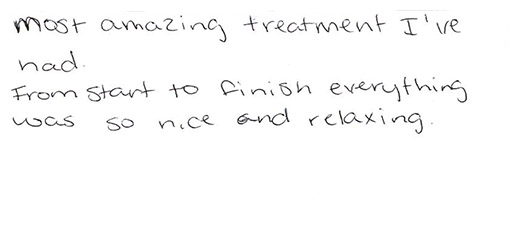 most amazing treatment I've
had.
From start to finish everything
was so nice and relaxing.